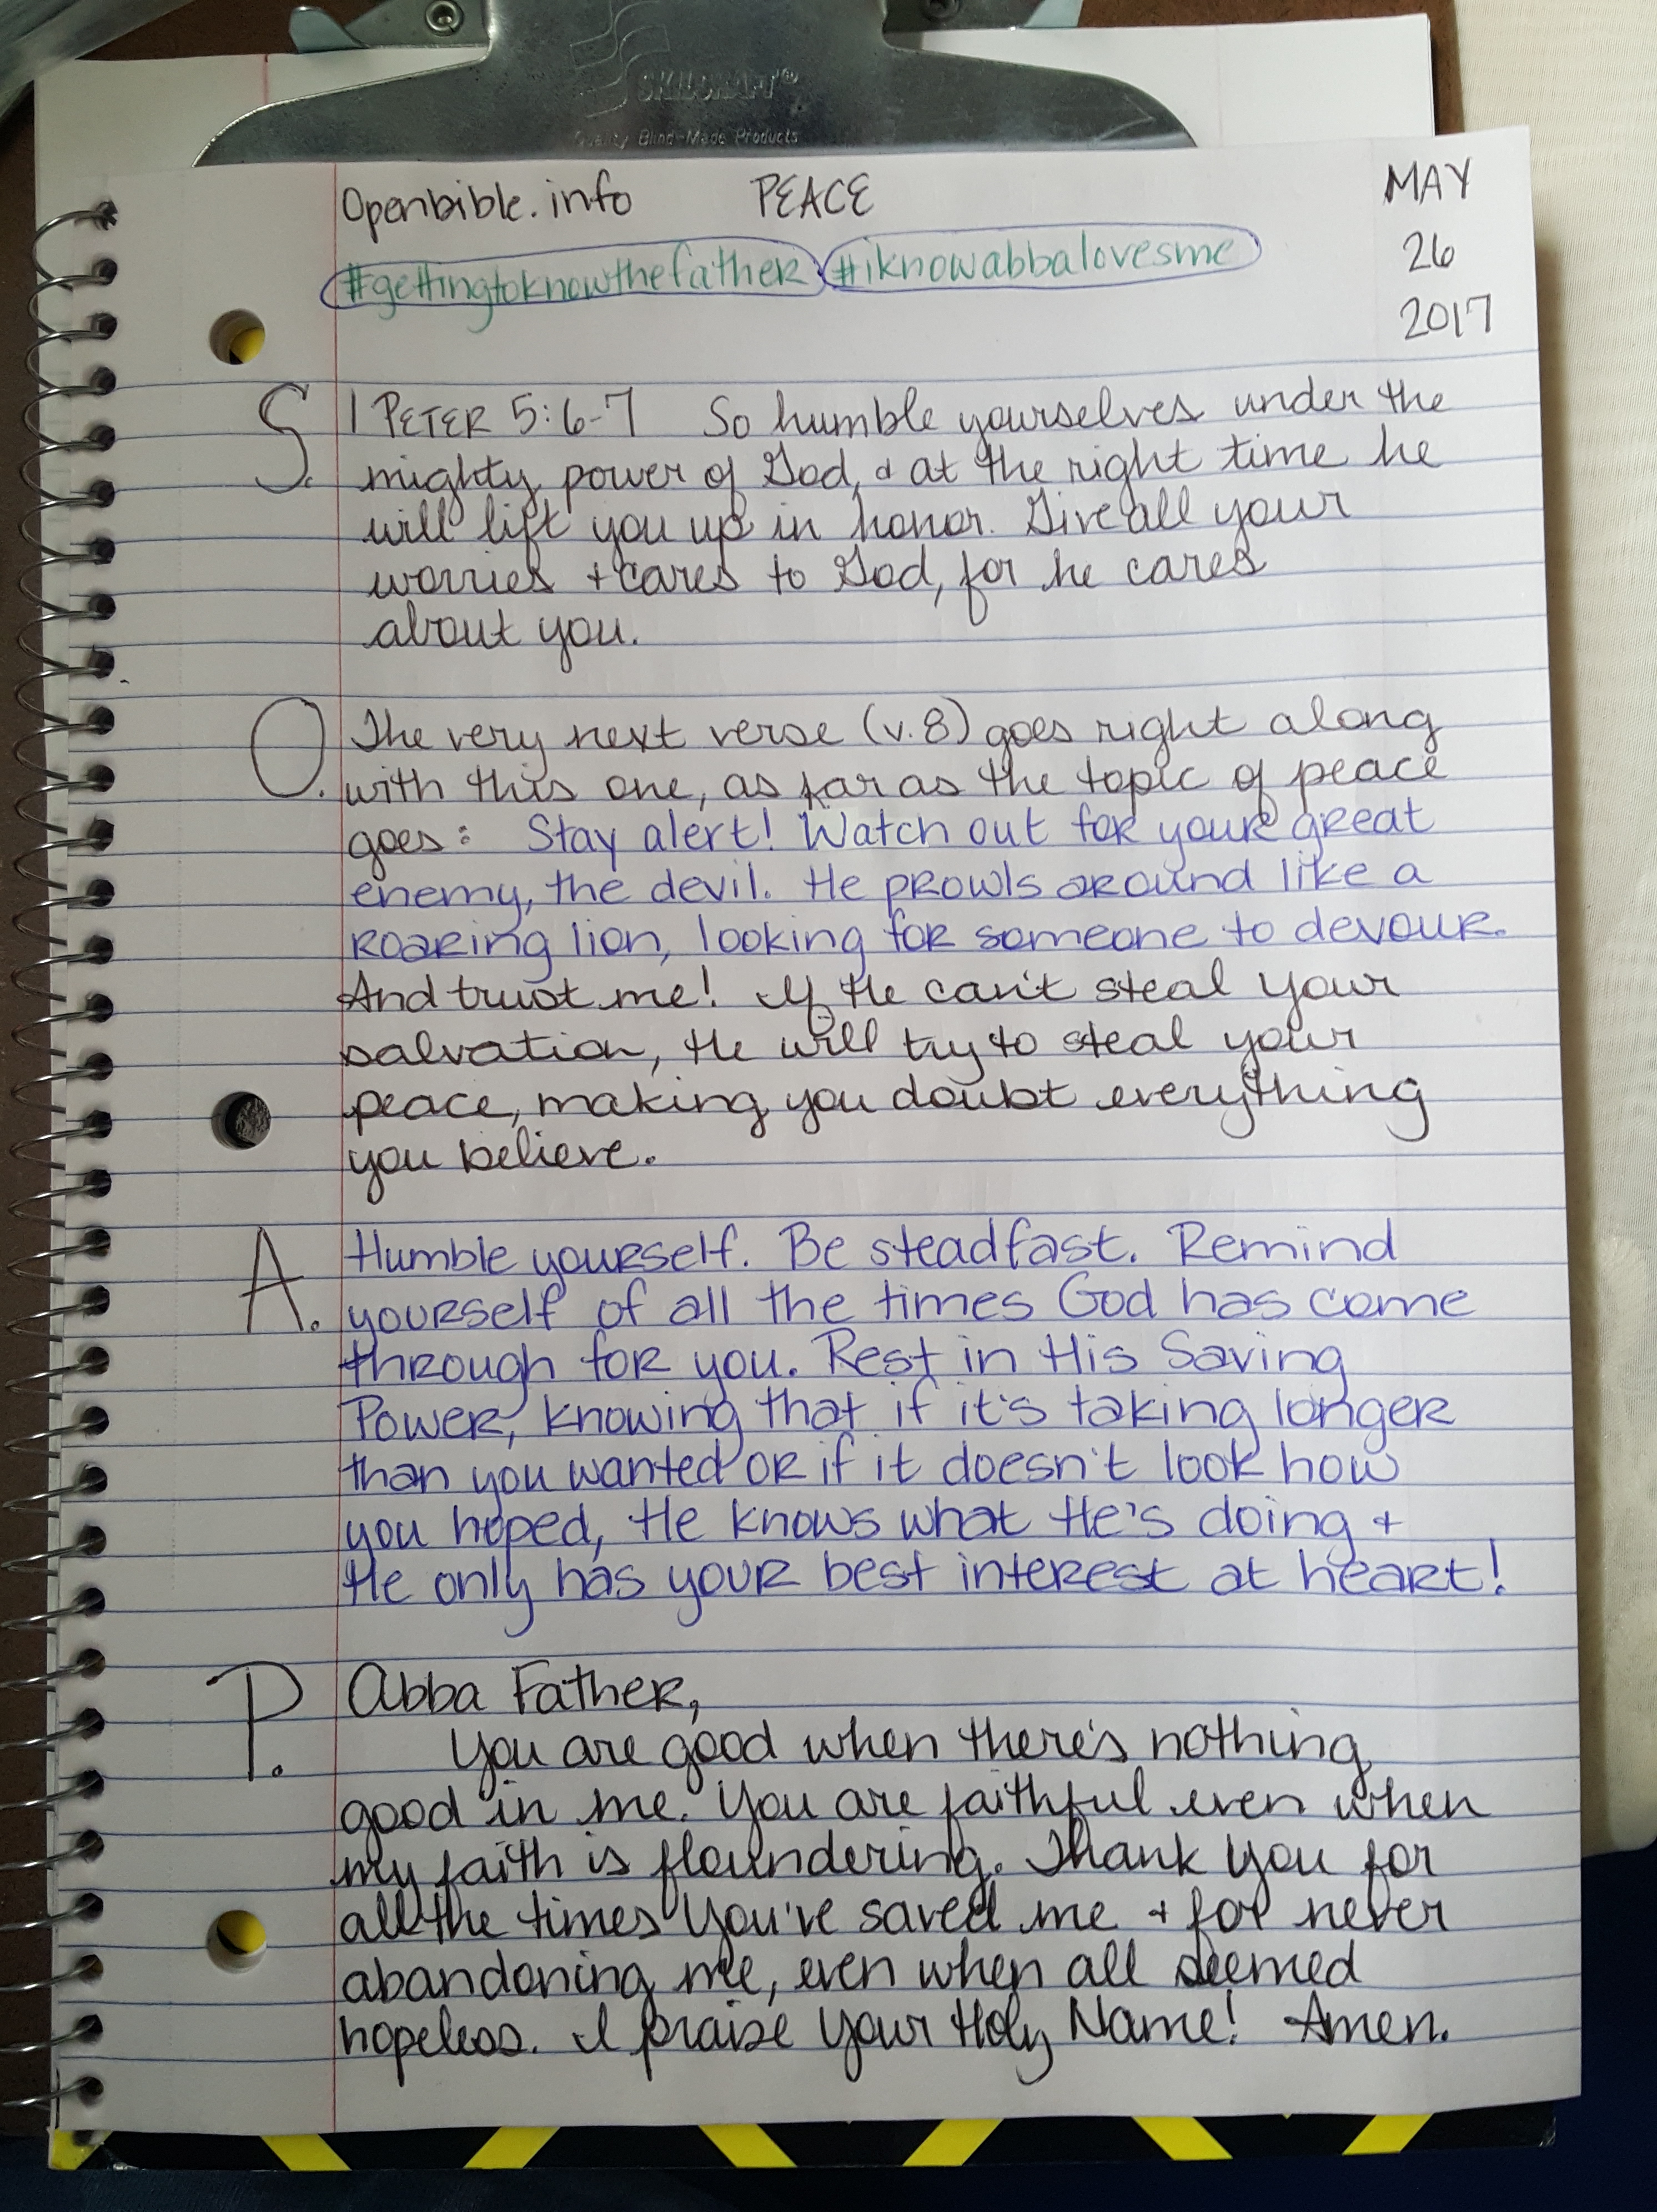 SKILCRAFT®
Quality Blind-Made Products
Openbible.info PEACE MAY
#gettingtoknowthefather #iknowabbalovesme 26
2017
S. 1 PETER 5:6-7 So humble yourselves under the
mighty power of God, & at the right time he
will lift you up in honor. Give all your
worries + cares to God, for he cares
about you.
O. The very next verse (v.8) goes right along
with this one, as far as the topic of peace
goes: Stay alert! Watch out for your great
enemy, the devil. He prowls around like a
roaring lion, looking for someone to devour.
And trust me! If He can't steal your
salvation, He will try to steal your
peace, making you doubt everything
you believe.
A. Humble yourself. Be steadfast. Remind
yourself of all the times God has come
through for you. Rest in His Saving
Power, knowing that if it's taking longer
than you wanted or if it doesn't look how
you hoped, He knows what He's doing +
He only has your best interest at heart!
P. Abba Father,
You are good when there's nothing
good in me. You are faithful even when
my faith is floundering. Thank You for
all the times You've saved me + for never
abandoning me, even when all seemed
hopeless. I praise Your Holy Name! Amen.